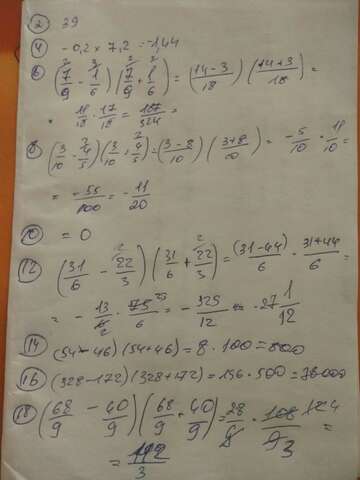 ② 39
④ -0,2 × 7,2 = -1,44
⑥ (7/9 - 1/6) (7/9 + 1/6) = (14-3/18) (14+3/18) =
= 11/18 · 17/18 = 187/324
⑧ (3/10 - 4/5) (3/10 + 4/5) = (3-8/10) (3+8/10) = -5/10 · 11/10 =
= -55/100 = -11/20
⑩ = 0
⑫ (31/6 - 22/3) (31/6 + 22/3) = (31-44)/6 · 31+44/6 =
= -13/2 · 75/6 = -325/12 = -27 1/12
⑭ (54-46) (54+46) = 8 · 100 = 800
⑯ (328-172) (328+172) = 156 · 500 = 78000
⑱ (68/9 - 40/9) (68/9 + 40/9) = 28/9 · 108/9 =
= 112/3